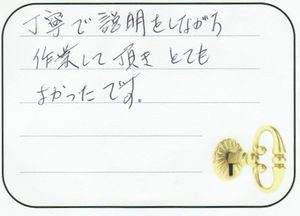 丁寧で説明をしながら
作業して頂き とても
よかったです。